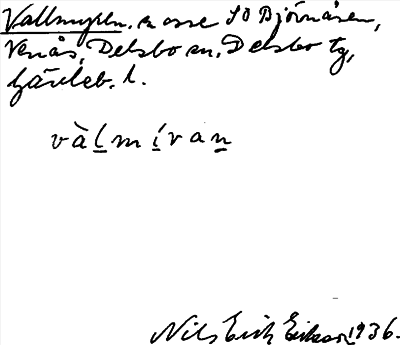 Vallmyren. mosse SO Björnåsen,
Venås, Delsbo sn. Delsbo tg,
Gävleb. l.
vàlmívan
Nils Erik Eriksson 1936.